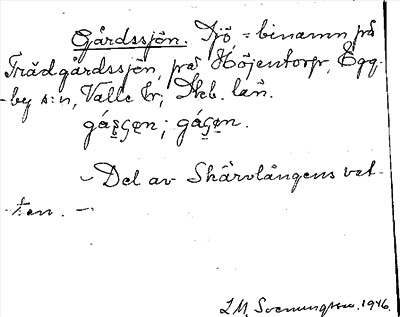 Gårdssjön. Sjö = binamn på
Trädgårdssjön, på Höjentorp, Egg-
by s:n, Valle hr, Skb. län.
– Del av Skärvlångens vat-
ten. –
L.M. Svenungsson. 1946.